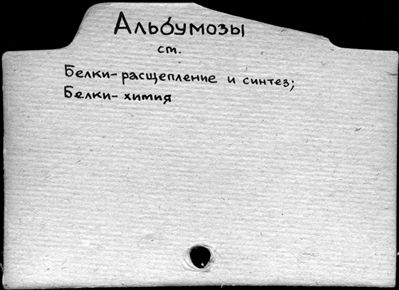 Альбумозы
ст.
Белки-расщепление и синтез;
Белки-химия